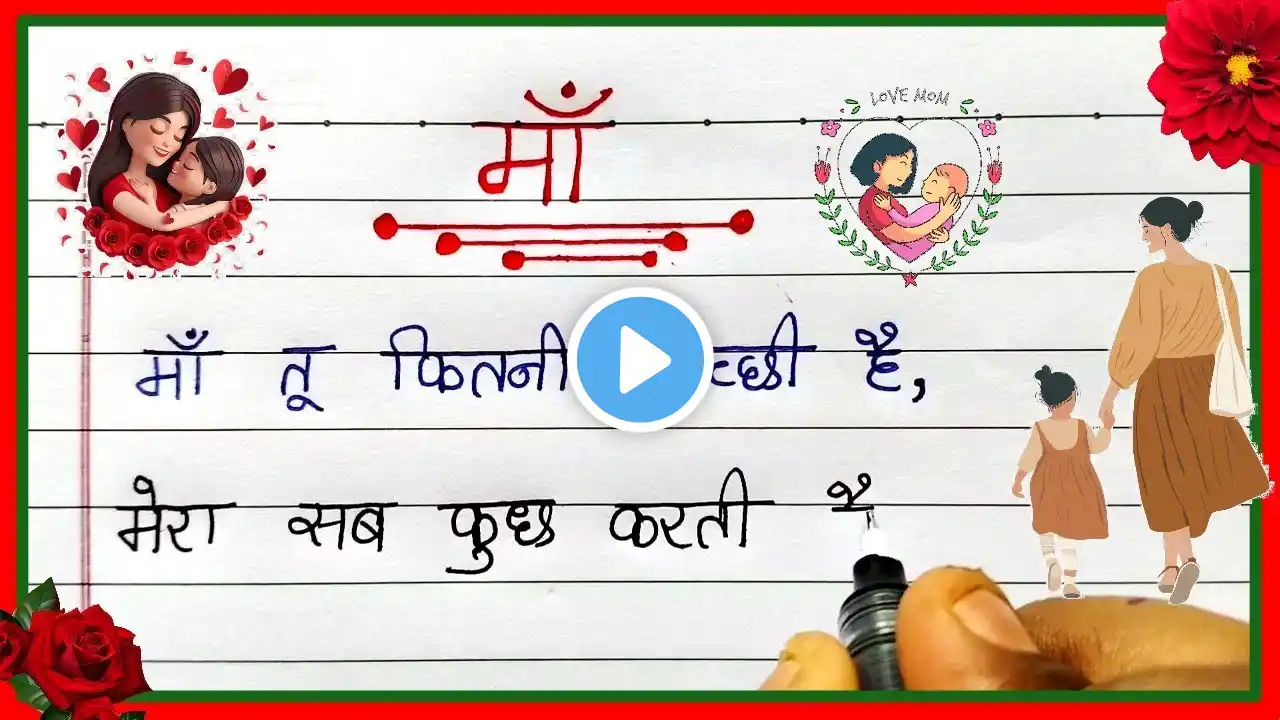 माँ
LOVE MOM
माँ तू कितनी च्छी है,
मेरा सब कुछ करती